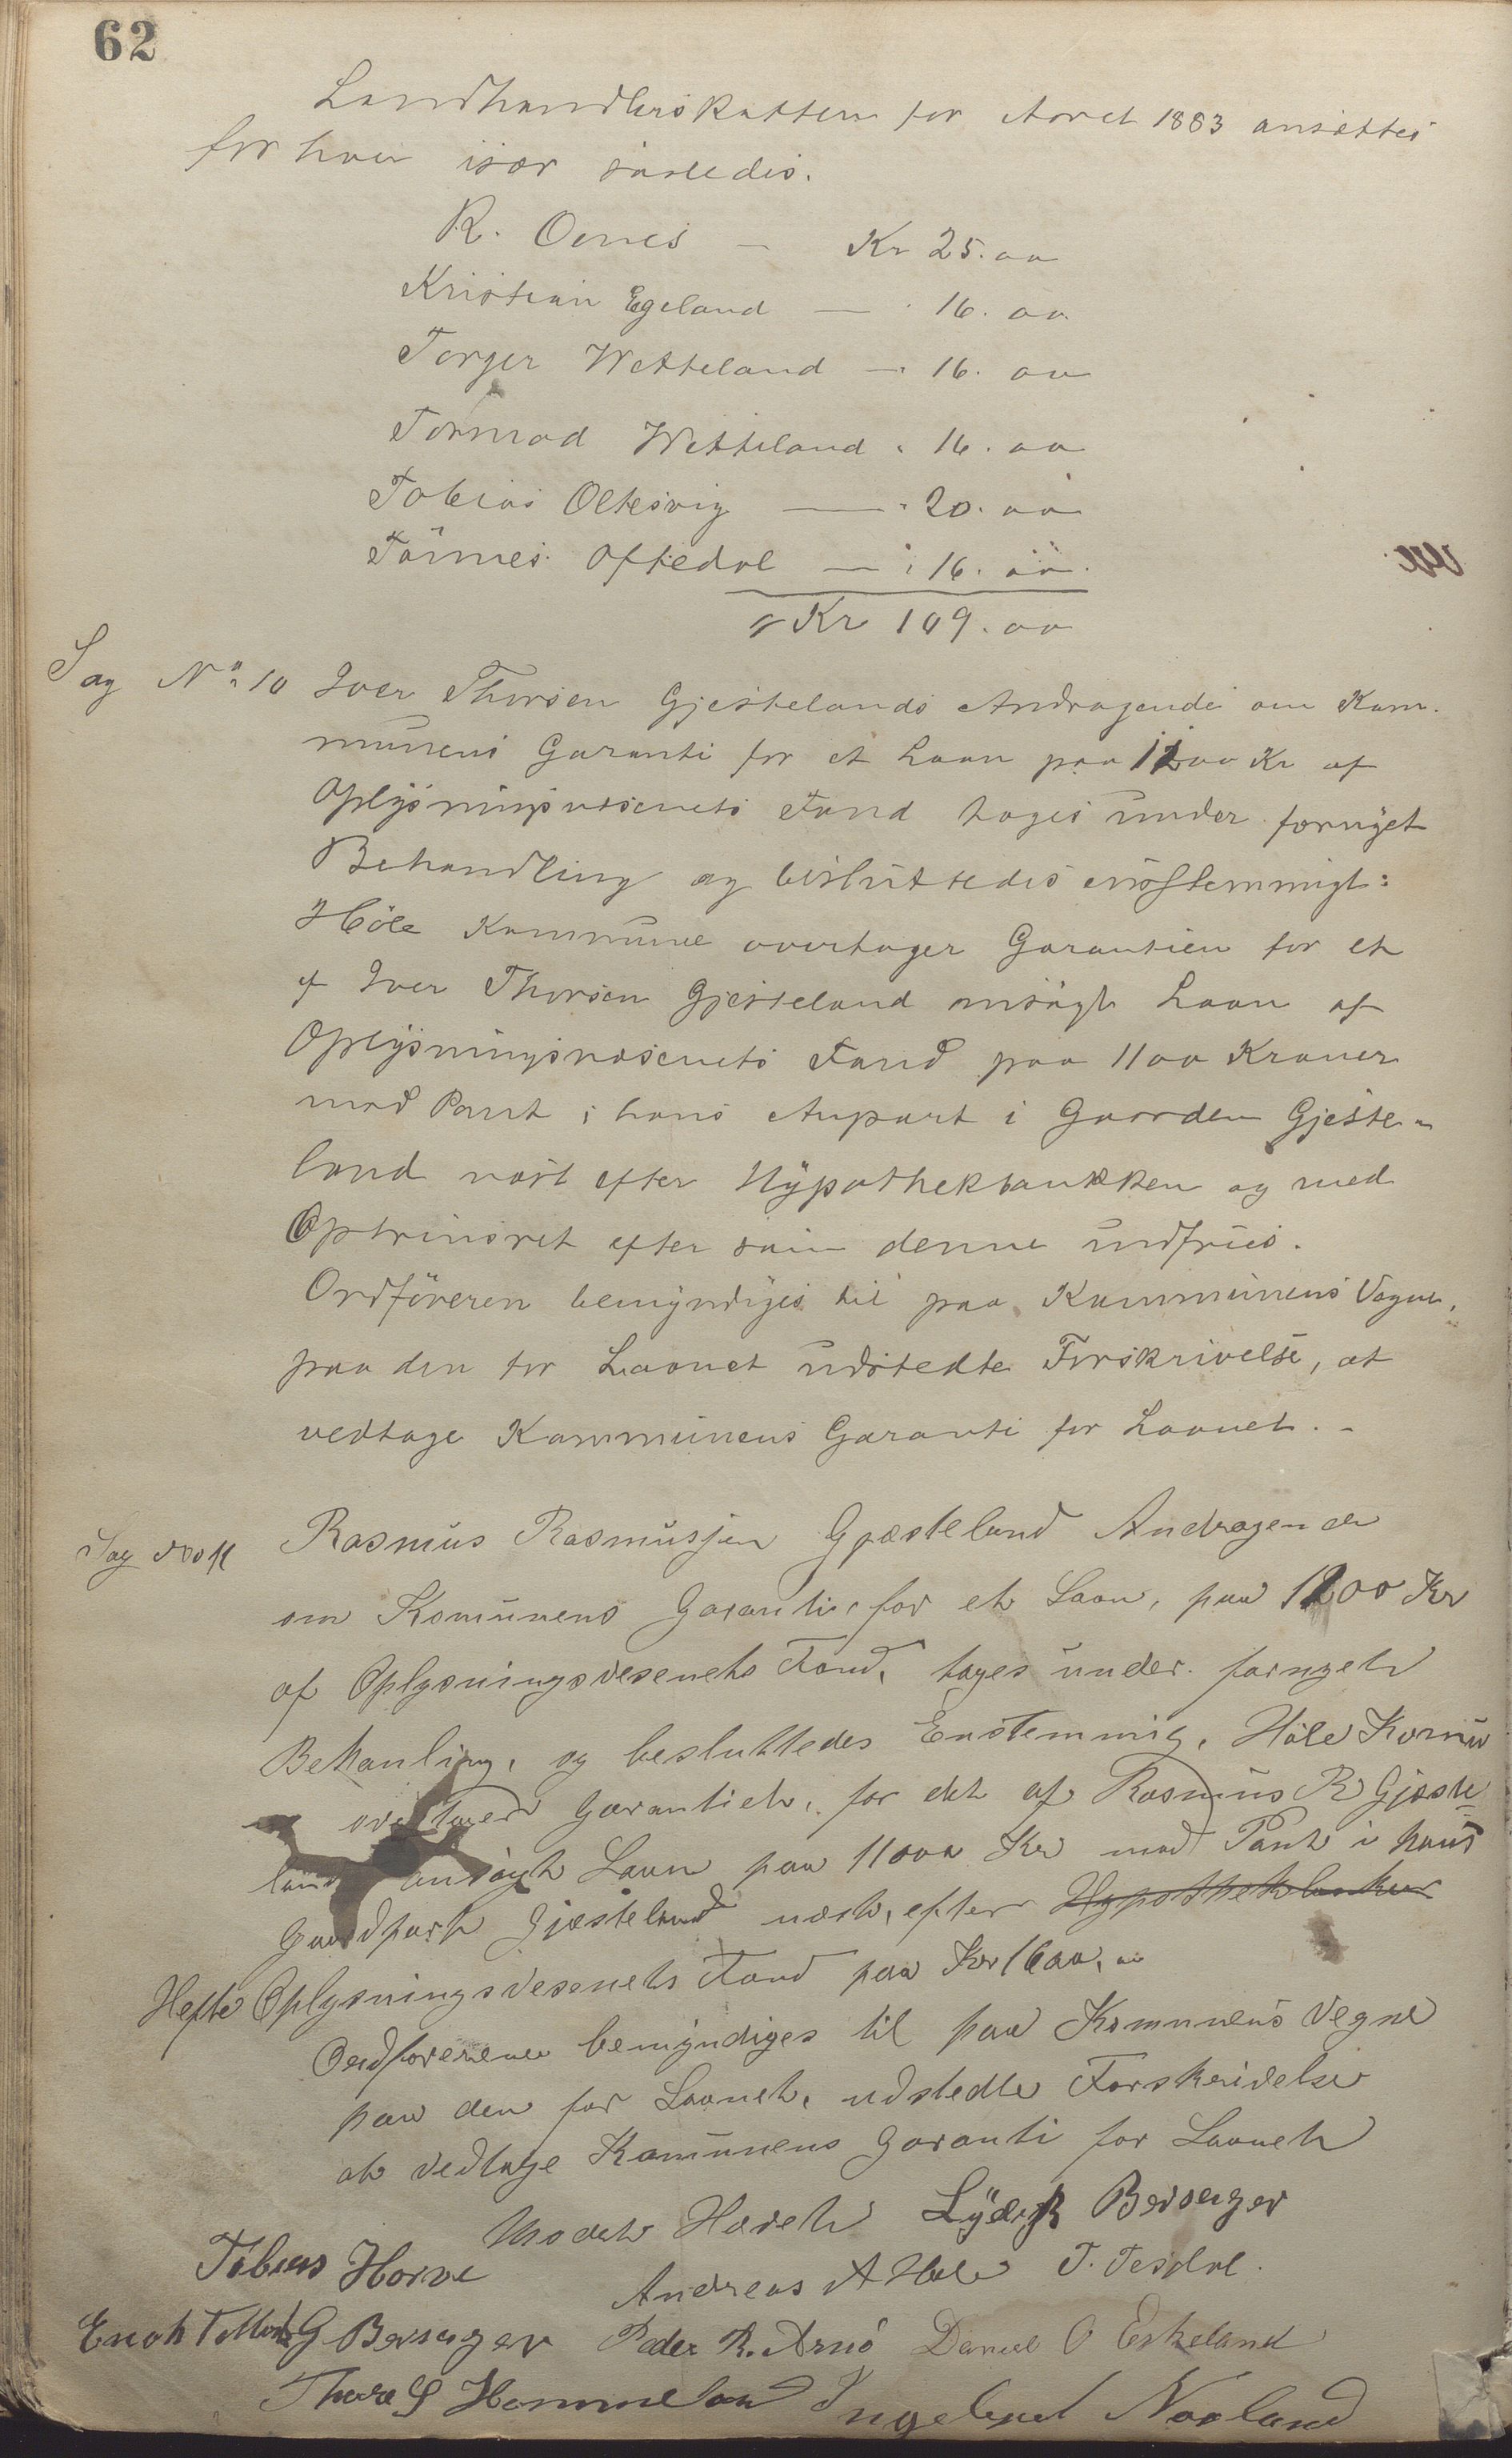 62
Landhandlerskatten for Aaret 1883 ansættes
for hver især saaledes.
R. Oenes – Kr 25.00
Kristian Egeland — " 16.00
Torger Wetteland — " 16.00
Tormod Wetteland " 16.00
Tobias Oltesvig — " 20.00
Tönnes Oftedal — " 16.00
Kr 109.00
Sag No 10 Iver Thorsen Gjestelands Andragende om Kom-
munens Garanti for et Laan paa 1100 Kr af
Oplysningsvæsenets Fond toges under fornyet
Behandling og besluttedes enstemmigt:
Höle Kommune overtager Garantien for et
af Iver Thorsen Gjesteland ansögt Laan af
Oplysningsvæsenets Fond paa 1100 Kroner
mod Pant i hans Anpart i Gaarden Gjeste-
land næst efter Hypothekbankken og med
Optrinsret efter som denne indfries.
Ordföreren bemyndiges til paa Kommunens Vegne,
paa den for Laanet udstedte Forskrivelse, at
vedtage Kommunens Garanti for Laanet. -
Sag No 11 Rasmus Rasmussen Gjæsteland Andragende
om Komunens Garanti, for et Laan, paa 1200 Kr
af Oplysningsvesenets Fond, tages under fornyet
Behanling, og besluttedes Enstemmig, Höle Komu
overtaer Garantiet, for det af Rasmus R Gjæste
land ansögt Laan paa 11000 Kr mod Pant i hans
Gaardpart Gjæsteland næst, efter Hypothekbanken
Hefte Oplysningsvesenets Fond paa Kr 1600,00
Ordförerenen bemyndiges til paa Komunens Vegne
paa den for Laanet, udstedte Forskrivelse
at vedtage Komunens Garanti for Laanet
Modet Hævet Lyder Bersager
Tobias Horve Andreas A Hole T. Tesdal.
Enok G Bersager Peder R. Arnö Daniel O Eskeland
Thore S Hommeland Ingebret Norland